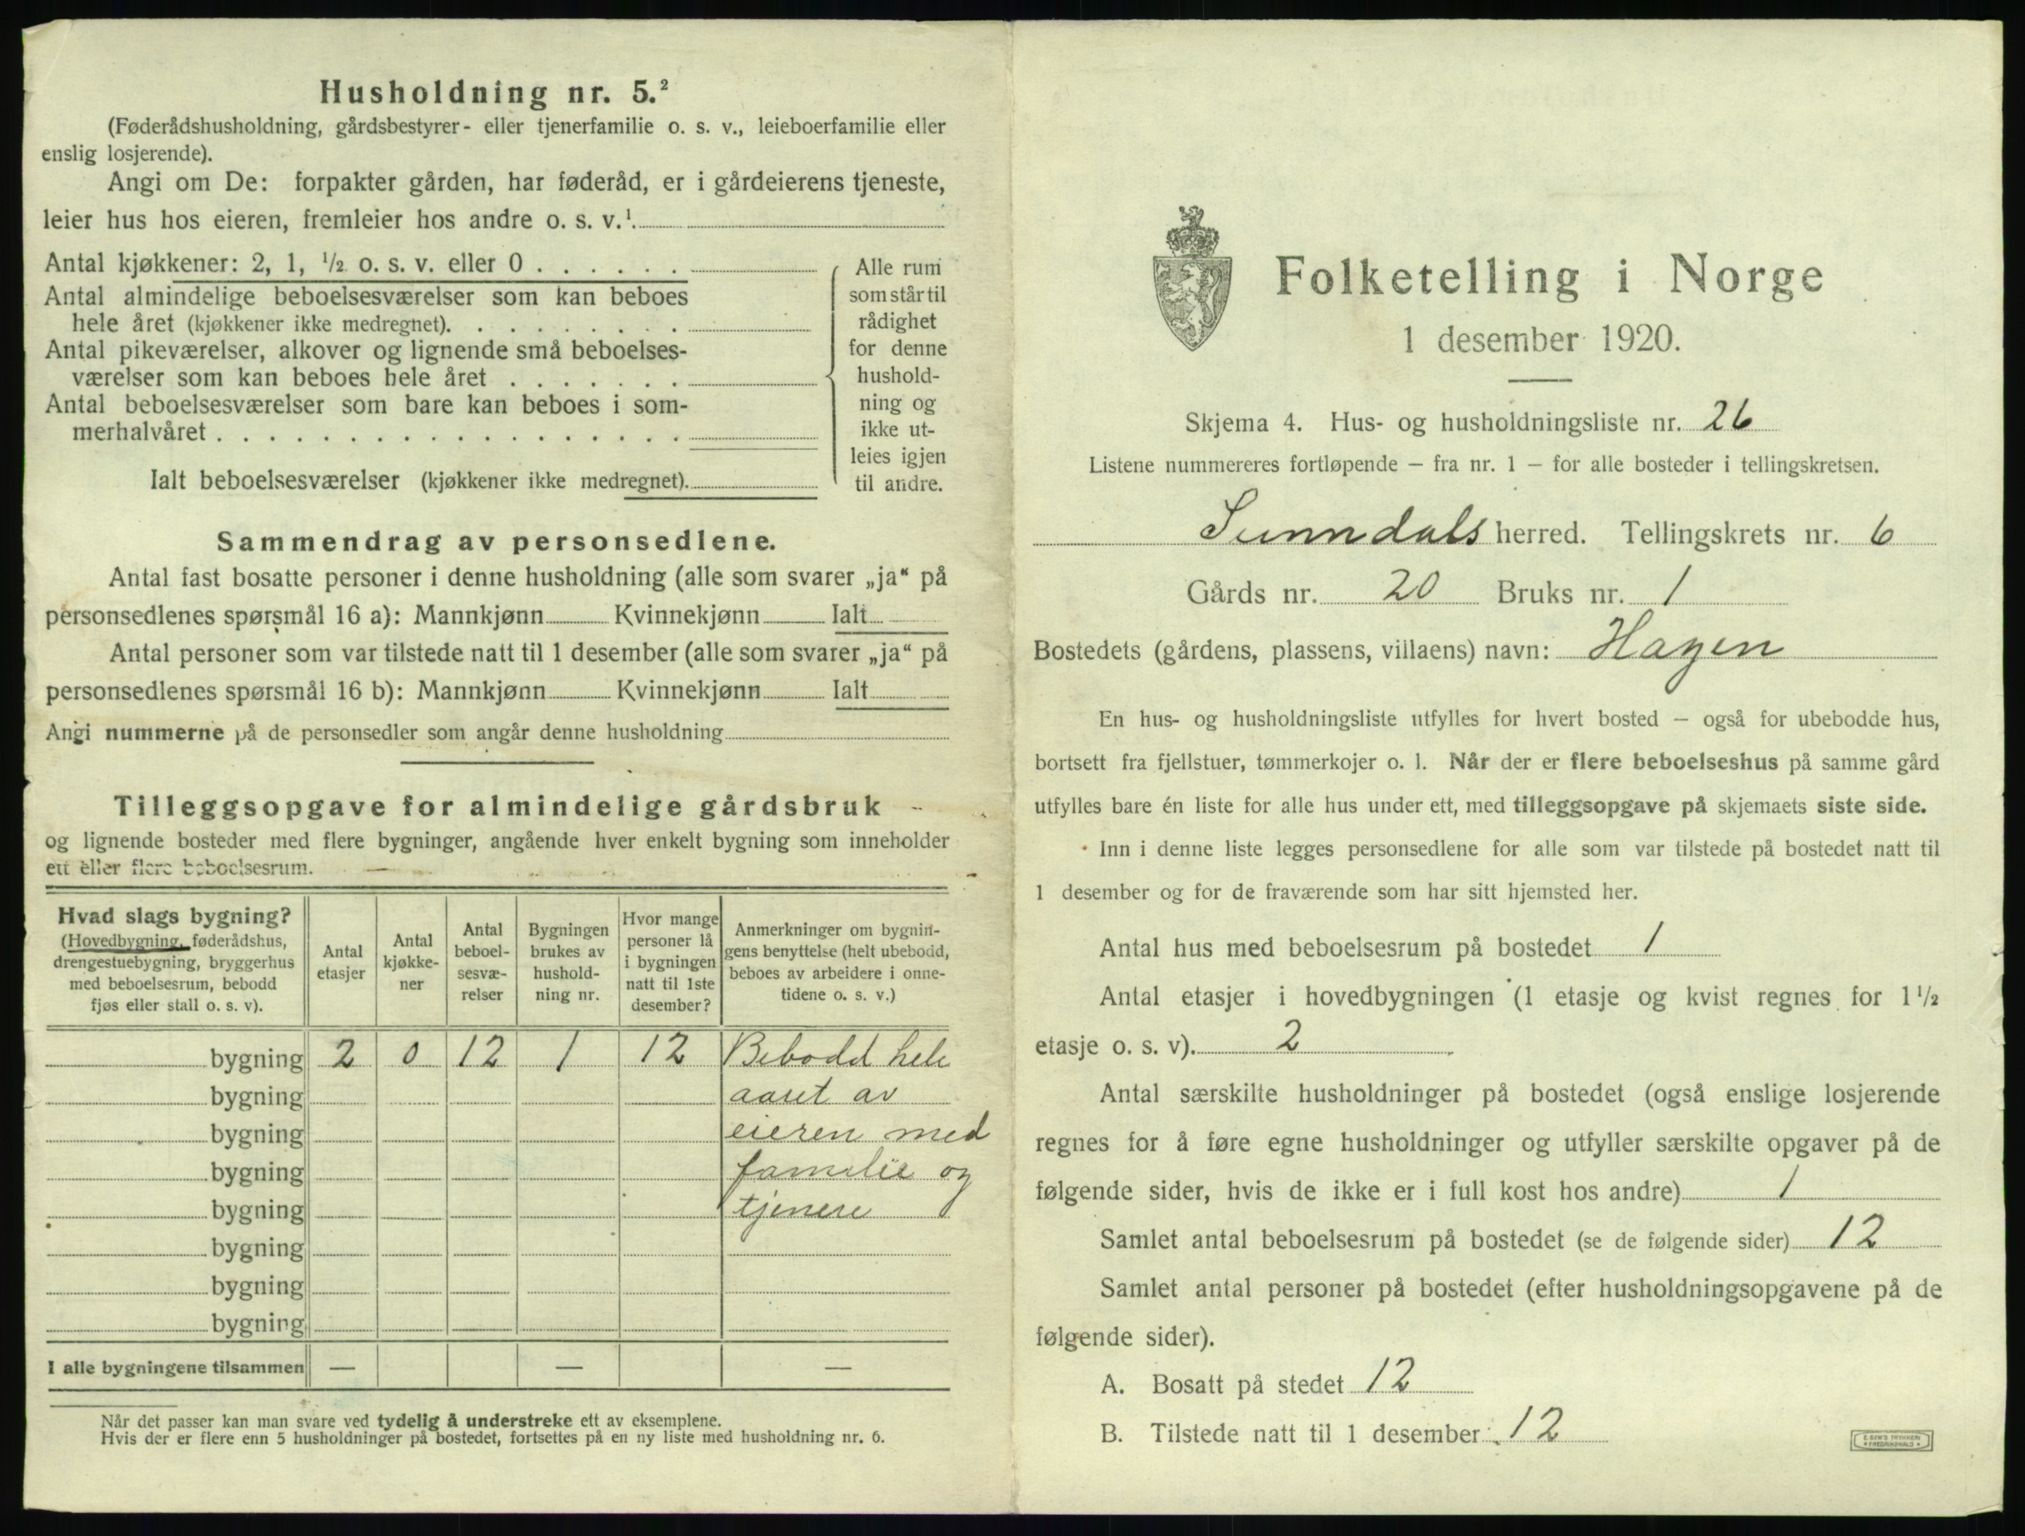 Husholdning nr. 5.²
(Føderådshusholdning, gårdsbestyrer- eller tjenerfamilie o. s. v., leieboerfamilie eller
enslig losjerende).
Angi om De: forpakter gården, har føderåd, er i gårdeierens tjeneste,
leier hus hos eieren, fremleier hos andre o. s. v.¹.
Antal kjøkkener: 2, 1, ½ o. s. v. eller 0 . . . . . .
Antal almindelige beboelsesværelser som kan beboes
hele året (kjøkkener ikke medregnet). . . . . . . . .
Antal pikeværelser, alkover og lignende små beboelses-
værelser som kan beboes hele året . . . . . . .
Antal beboelsesværelser som bare kan beboes i som-
merhalvåret . . . . . . . . . . . . . . . . . .
Ialt beboelsesværelser (kjøkkener ikke medregnet).
Alle rum
som står til
rådighet
for denne
hushold-
ning og
ikke ut-
leies igjen
til andre.
Sammendrag av personsedlene.
Antal fast bosatte personer i denne husholdning (alle som svarer „ja“ på
personsedlenes spørsmål 16 a): Mannkjønn Kvinnekjønn Ialt
Antal personer som var tilstede natt til 1 desember (alle som svarer „ja“ på
personsedlenes spørsmål 16 b): Mannkjønn Kvinnekjønn Ialt
Angi nummerne på de personsedler som angår denne husholdning
Tilleggsopgave for almindelige gårdsbruk
og lignende bosteder med flere bygninger, angående hver enkelt bygning som inneholder
ett eller flere beboelsesrum.
Hvad slags bygning?
(Hovedbygning, føderådshus,
drengestuebygning, bryggerhus
med beboelsesrum, bebodd
fjøs eller stall o. s. v).
Antal
etasjer
Antal
kjøkke-
ner
Antal
beboel-
sesvæ-
relser
Bygningen
brukes av
hushold-
ning nr.
Hvor mange
personer lå
i bygningen
natt til 1ste
desember?
Anmerkninger om bygnin-
gens benyttelse (helt ubebodd,
beboes av arbeidere i onne-
tidene o. s. v.)
bygning 2 0 12 1 12 Bebodd hele
bygning aaret av
bygning eieren med
bygning familie og
bygning tjenere
bygning
bygning
bygning
I alle bygningene tilsammen — — —
Når det passer kan man svare ved tydelig å understreke ett av eksemplene.
Hvis der er flere enn 5 husholdninger på bostedet, fortsettes på en ny liste med husholdning nr. 6.
Folketelling i Norge
1 desember 1920.
Skjema 4. Hus- og husholdningsliste nr. 26
Listene nummereres fortløpende – fra nr. 1 – for alle bosteder i tellingskretsen.
Sunndals herred. Tellingskrets nr. 6
Gårds nr. 20 Bruks nr. 1
Bostedets (gårdens, plassens, villaens) navn: Hagen
En hus- og husholdningsliste utfylles for hvert bosted – også for ubebodde hus,
bortsett fra fjellstuer, tømmerkojer o. l. Når der er flere beboelseshus på samme gård
utfylles bare én liste for alle hus under ett, med tilleggsopgave på skjemaets siste side.
Inn i denne liste legges personsedlene for alle som var tilstede på bostedet natt til
1 desember og for de fraværende som har sitt hjemsted her.
Antal hus med beboelsesrum på bostedet 1
Antal etasjer i hovedbygningen (1 etasje og kvist regnes for 1 ½
etasje o. s. v). 2
Antal særskilte husholdninger på bostedet (også enslige losjerende
regnes for å føre egne husholdninger og utfyller særskilte opgaver på de
følgende sider, hvis de ikke er i full kost hos andre) 1
Samlet antal beboelsesrum på bostedet (se de følgende sider) 12
Samlet antal personer på bostedet (efter husholdningsopgavene på de
følgende sider).
A. Bosatt på stedet 12
B. Tilstede natt til 1 desember 12